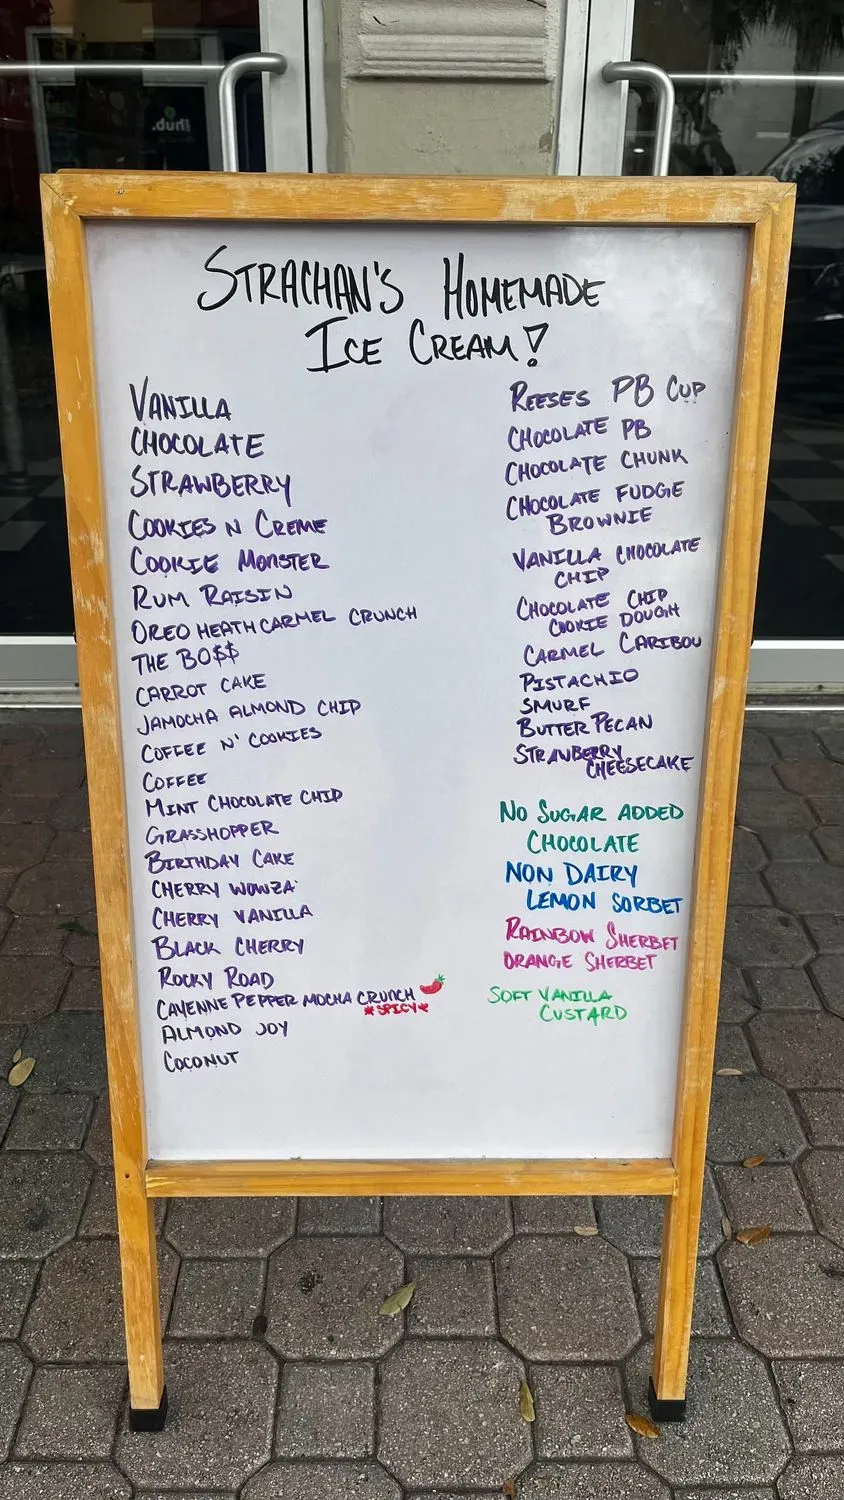 ihub.
STRACHAN'S HOMEMADE
ICE CREAM!
VANILLA
CHOCOLATE
STRAWBERRY
COOKIES N CREME
COOKIE MONSTER
RUM RAISIN
OREO HEATH CARMEL CRUNCH
THE BO$$
CARROT CAKE
JAMOCHA ALMOND CHIP
COFFEE N' COOKIES
COFFEE
MINT CHOCOLATE CHIP
GRASSHOPPER
BIRTHDAY CAKE
CHERRY WOWZA
CHERRY VANILLA
BLACK CHERRY
ROCKY ROAD
CAYENNE PEPPER MOCHA CRUNCH
*SPICY*
ALMOND JOY
COCONUT
REESES PB CUP
CHOCOLATE PB
CHOCOLATE CHUNK
CHOCOLATE FUDGE
BROWNIE
VANILLA CHOCOLATE
CHIP
CHOCOLATE CHIP
COOKIE DOUGH
CARMEL CARIBOU
PISTACHIO
SMURF
BUTTER PECAN
STRAWBERRY
CHEESECAKE
NO SUGAR ADDED
CHOCOLATE
NON DAIRY
LEMON SORBET
RAINBOW SHERBET
ORANGE SHERBET
SOFT VANILLA
CUSTARD